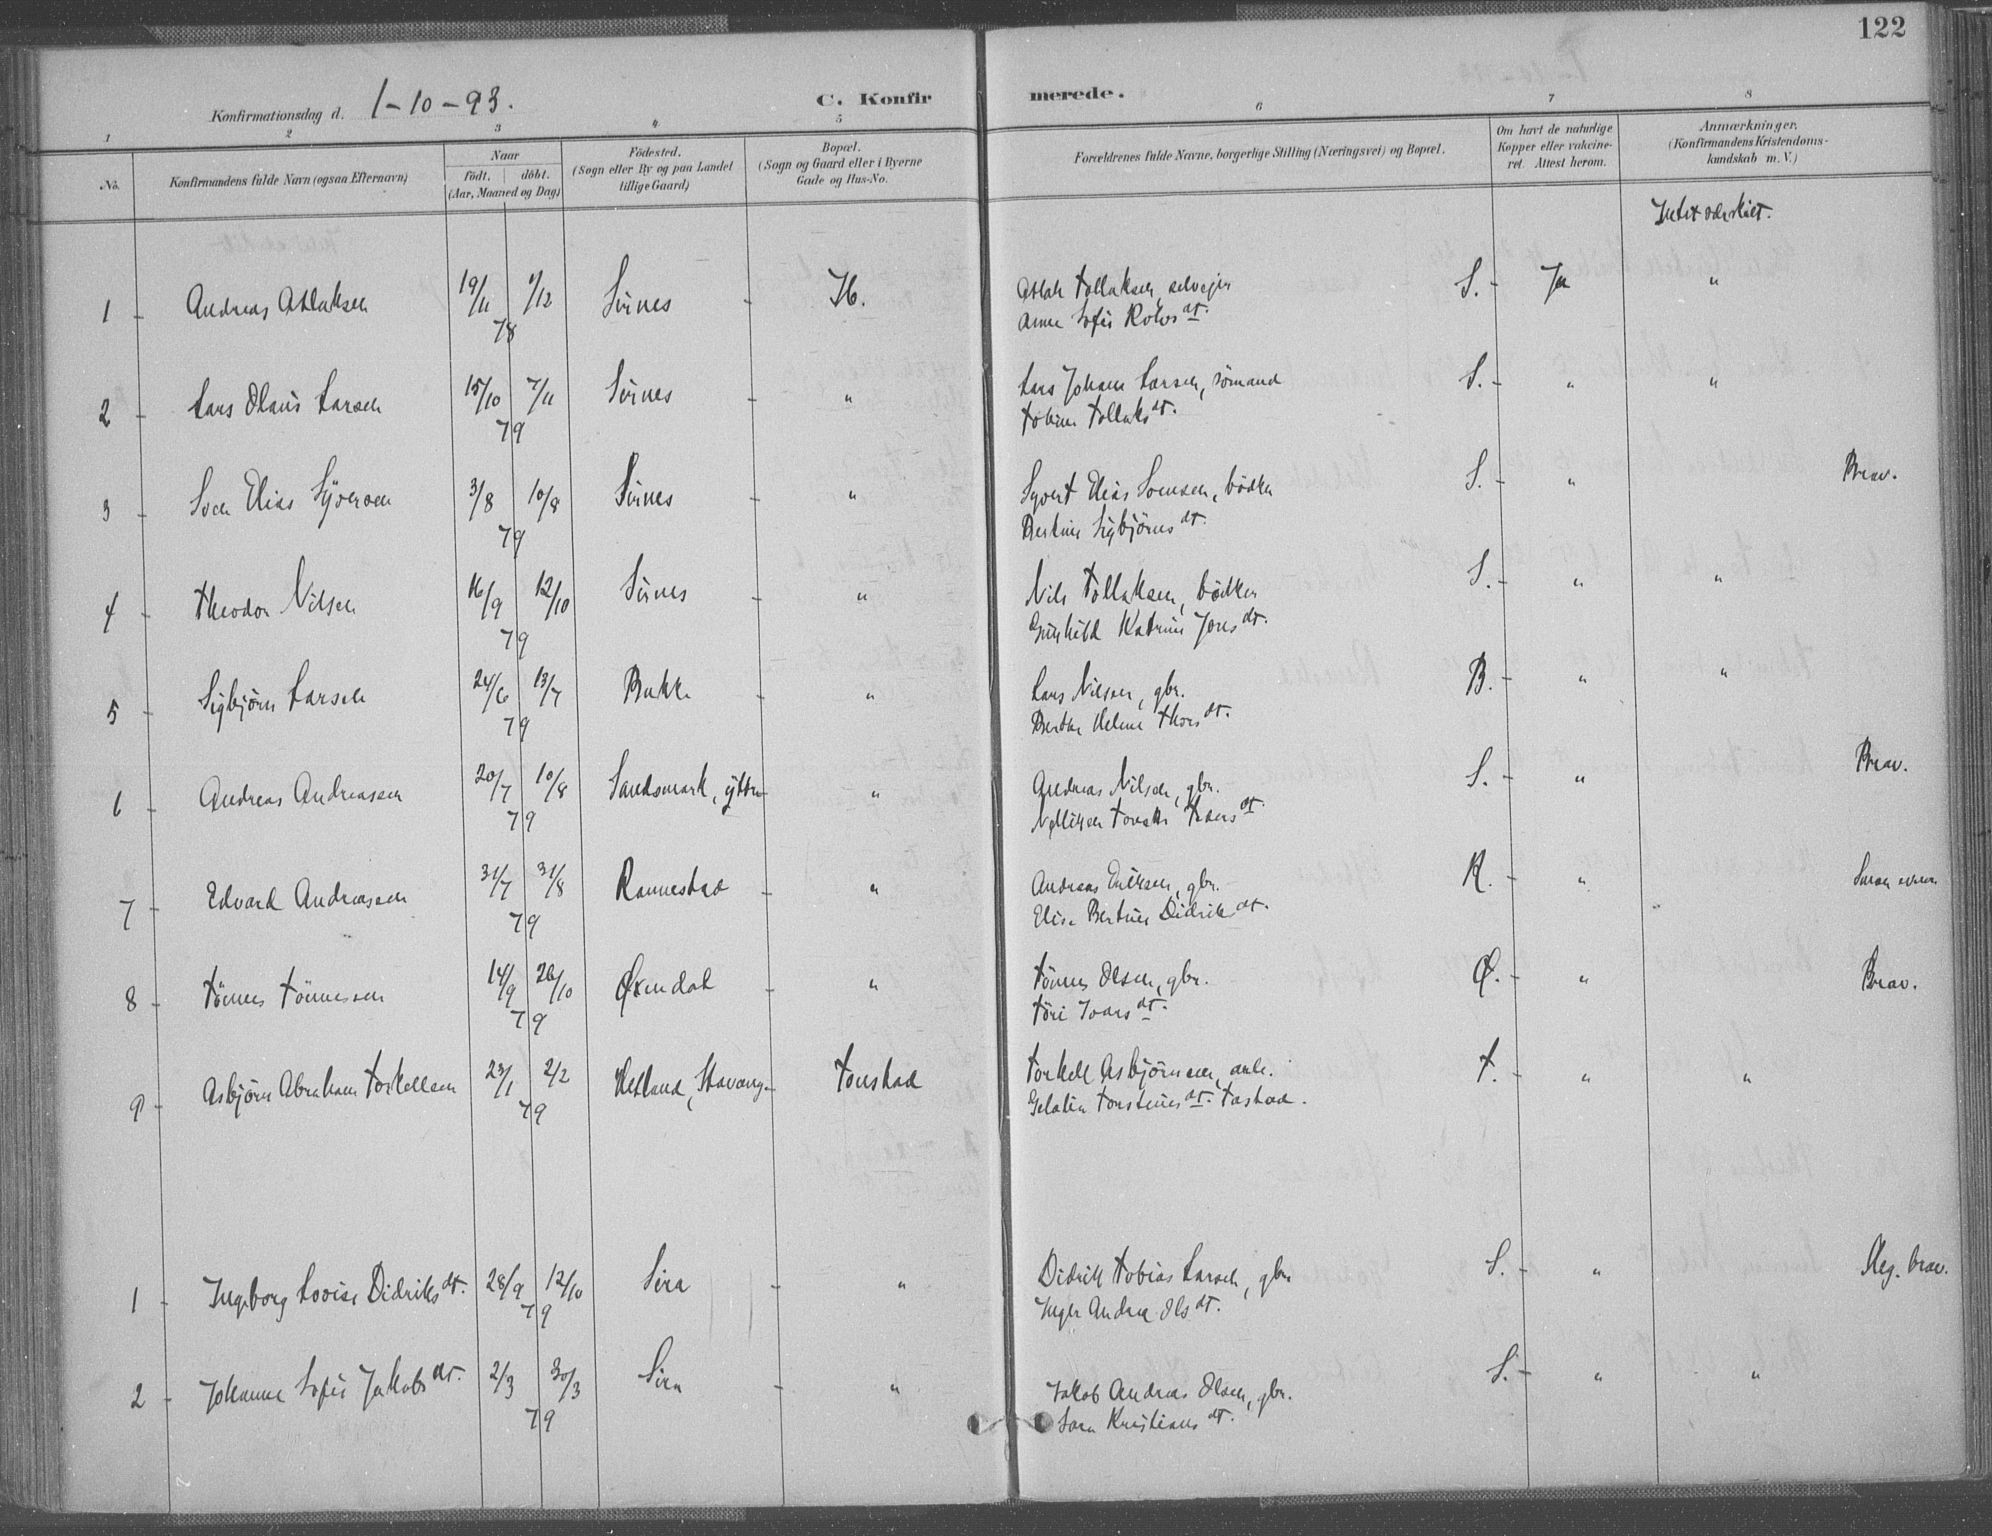 122
Konfirmationsdag d. 1-10-93.
C. Konfirmerede.
1 2 3 4 5 6 7 8
No.
Konfirmandens fulde Navn (ogsaa Efternavn)
Naar
födt. döbt.
(Aar, Maaned og Dag)
Födested.
(Sogn eller By og paa Landet
tillige Gaard)
Bopæl.
(Sogn og Gaard eller i Byerne
Gade og Hus-No.
Forældrenes fulde Navne, borgerlige Stilling (Næringsvei) og Bopæl.
Om havt de naturlige
Kopper eller vakcine-
ret. Attest herom.
Anmærkninger.
(Konfirmandens Kristendoms-
kundskab m. V.)
Intet
1 - Andreas Atlaksen 19/11 1/12 78 Sirnes - H. Atlak Tollaksen, selvejer S. - Ja "
Anne Sofie dt.
2 - Lars Olaus Larsen 15/10 7/11 79 Sirnes - " Lars Johan Larsen, sömand S. - " "
Tobine Tollaks dt.
3 - Sven Elias Syversen 3/8 10/8 79 Sirnes - " Syvert Elias Svensen, bödker S. - " Brav.
Bertine Sigbjörns dt.
4 - Theodor Nilsen 16/9 12/10 79 Sirnes - " Nils Tollaksen, bödker S. - " "
Gunhild Katrine Jons dt.
5 - Sigbjörn Larsen 24/6 13/7 79 Bakke - " Lars Nilsen, gbr. B. - " "
Berthe Helene Thors dt.
6 - Andreas Andreassen 20/7 10/8 79 Sandsmark, ytre - " Andreas Nilsen, gbr. S. - " Brav.
dt.
7 - Edvard Andreassen 31/7 31/8 79 Rannestad - " Andreas Eriksen, gbr. R. - "
Elise Bertine Didriks dt.
8 - Tönnes Tönnessen 14/9 26/10 79 Øxendal - " Tönnes Olsen, gbr. Ø. - " Brav.
Töri Ivars dt.
9 - Asbjörn Abraham Torkellsen 23/1 2/2 79 Hetland, Stavang. Tonstad Torkell Asbjörnsen, arb. T. - " "
Torstines dt. Tastad.
1 - Ingeborg Lovise Didriks dt. 28/9 12/10 79 Sira - " Didrik Tobias Larsen, gbr S. - " Meg. brav.
Inger Andrea Ols dt.
2 - Johanne Sofie Jakobs dt. 2/3 30/3 79 Sira - " Jakob Andreas Olsen, gbr. S. - " "
Sara Kristians dt.